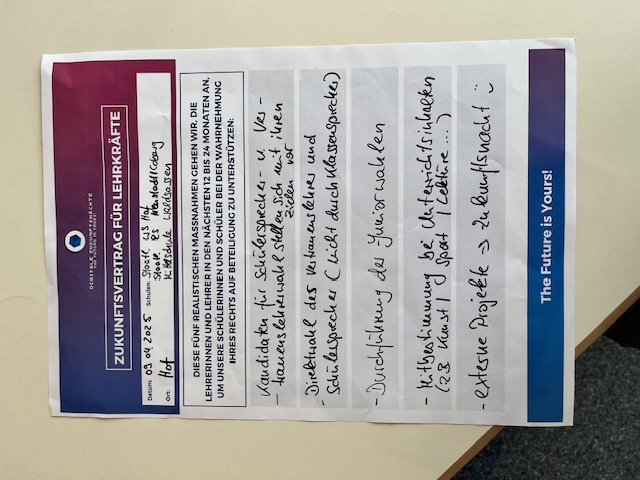 DIGITALE ZUKUNFTSNÄCHTE
THE FUTURE IS YOURS
ZUKUNFTSVERTRAG FÜR LEHRKRÄFTE
Datum: 09.04.2025 Schulen: Staatl. WS Hof
Staatl. RS Neustadt/Coburg
Ort: Hof Mittelschule Waldsassen
DIESE FÜNF REALISTISCHEN MASSNAHMEN GEHEN WIR, DIE
LEHRERINNEN UND LEHRER IN DEN NÄCHSTEN 12 BIS 24 MONATEN AN,
UM UNSERE SCHÜLERINNEN UND SCHÜLER BEI DER WAHRNEHMUNG
IHRES RECHTS AUF BETEILIGUNG ZU UNTERSTÜTZEN:
Kandidaten für Schülersprecher- u. Ver-
- trauenslehrerwahl stellen sich mit ihren
Zielen vor
- Direktwahl des Vertrauenslehrers und
Schülersprecher (nicht durch Klassensprecher)
- Durchführung der Juniorwahlen
- Mitbestimmung bei Unterrichtsinhalten
(zB Kunst / Sport / Lektüre ...)
- externe Projekte → Zukunftsnacht :)
The Future is Yours!